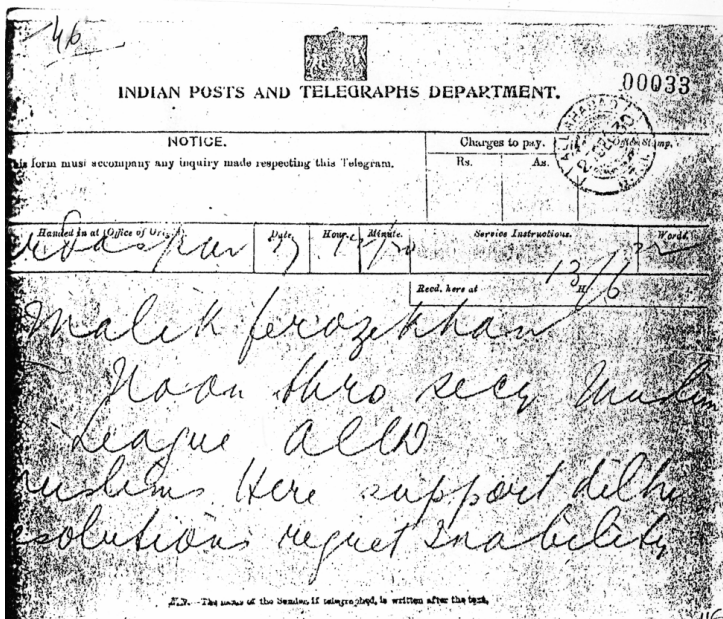 46
INDIAN POSTS AND TELEGRAPHS DEPARTMENT.
00033
NOTICE.
is form must accompany any inquiry made respecting this Telegram.
Charges to pay.
Rs. As.
Office Stamp.
ALLAHABAD
Handed in at (Office of Origin). Date. Hour. Minute. Service Instructions. Words.
rdaspur 17 12/20 32
Recd. here at 13 H/6
Malik ferozekhan
Noon thro secy Muslim
League Alld
muslims Here support delhi
esolutions regret Inability
N.B.—The name of the Sender, if telegraphed, is written after the text.